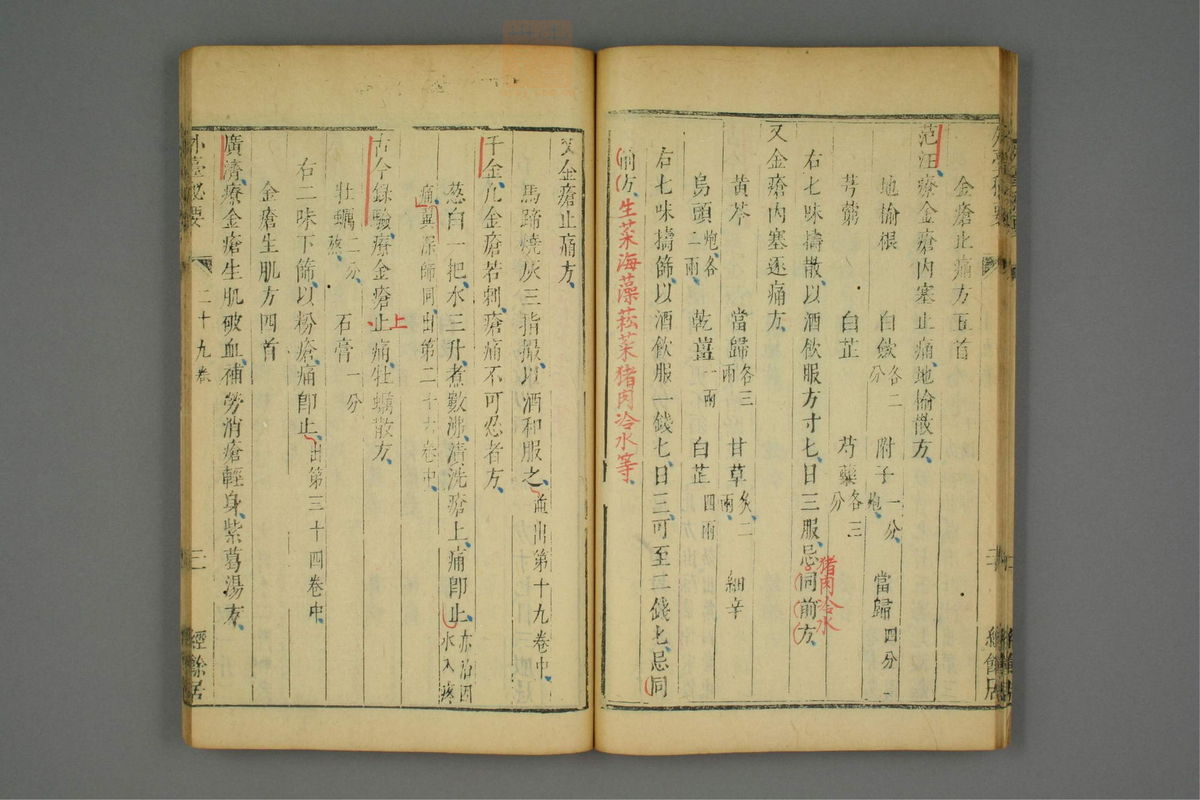 金瘡止痛方五首
范汪療金瘡內塞止痛地榆散方
地榆根 白斂各二分 附子一分炮 當歸四分
芎藭 白芷 芍藥各三分
右七味擣散以酒飲服方寸匕日三服忌同前方
猪肉冷水
又金瘡內塞逐痛方
黃芩 當歸各三兩 甘草炙二兩 細辛
烏頭炮各二兩 乾薑一兩 白芷四兩
右七味擣篩以酒飲服一錢匕日三可至二錢匕忌同
前方 生菜海藻菘菜猪肉冷水等
又金瘡止痛方
馬蹄燒灰三指撮以酒和服之並出第十九卷中
千金凡金瘡若刺瘡痛不可忍者方
葱白一把水三升煮數沸漬洗瘡上痛即止亦治因水入疼
痛冀深師同出第二十六卷中
古今録驗療金瘡止痛牡蠣散方
上
牡蠣二分熬 石膏一分
右二味下篩以粉瘡痛即止出第三十四卷中
金瘡生肌方四首
廣濟療金瘡生肌破血補勞消瘡輕身紫葛湯方
外臺祕要 二十九卷 三 經餘居